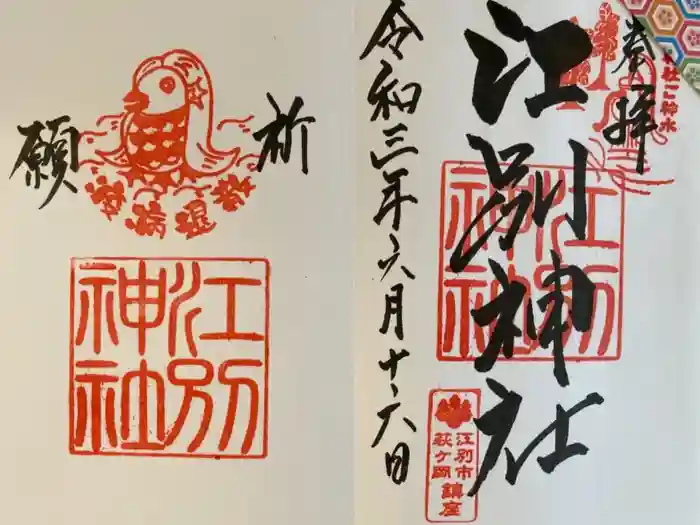 奉拝
江別神社
江別神社
江別市
萩ヶ岡
鎮座
令和三年六月十六日
祈
願
疫病退散
江別
神社